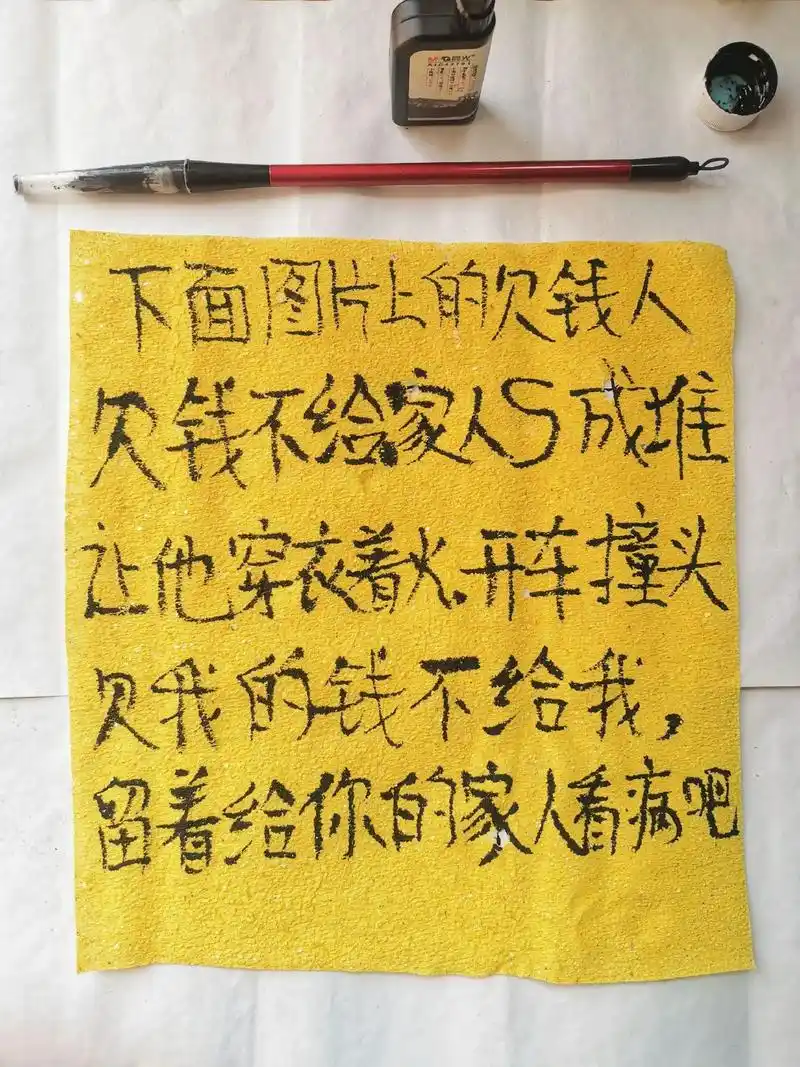 下面图片上的欠钱人
欠钱不给家人S成堆
让他穿衣着火.开车撞头
欠我的钱不给我,
留着给你的家人看病吧